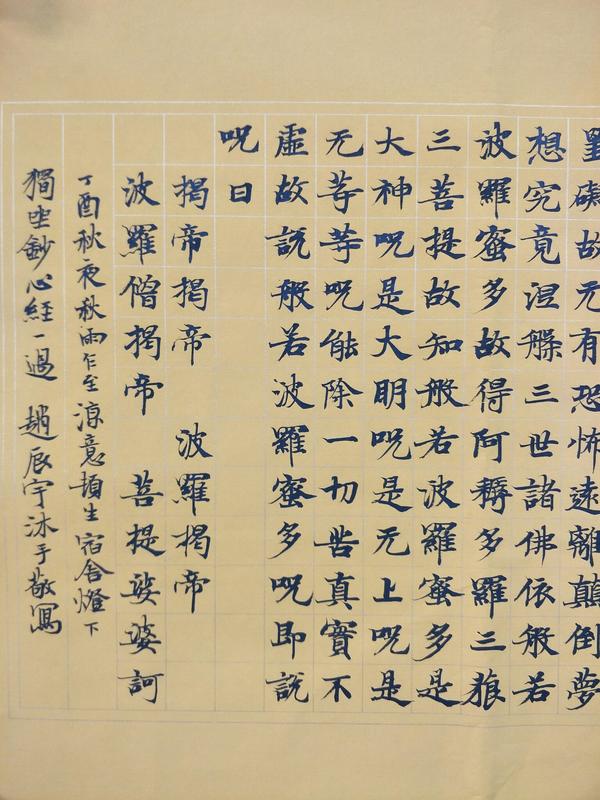 罣礙故无有恐怖遠離顛倒夢
想究竟涅槃三世諸佛依般若
波羅蜜多故得阿耨多羅三藐
三菩提故知般若波羅蜜多是
大神呪是大明呪是无上呪是
无等等呪能除一切苦真實不
虛故說般若波羅蜜多呪即說
呪曰
揭帝揭帝 波羅揭帝
波羅僧揭帝 菩提娑婆訶
丁酉秋夜秋雨乍至涼意頓生宿舍燈下
獨坐鈔心經一過 趙辰宇沐手敬寫